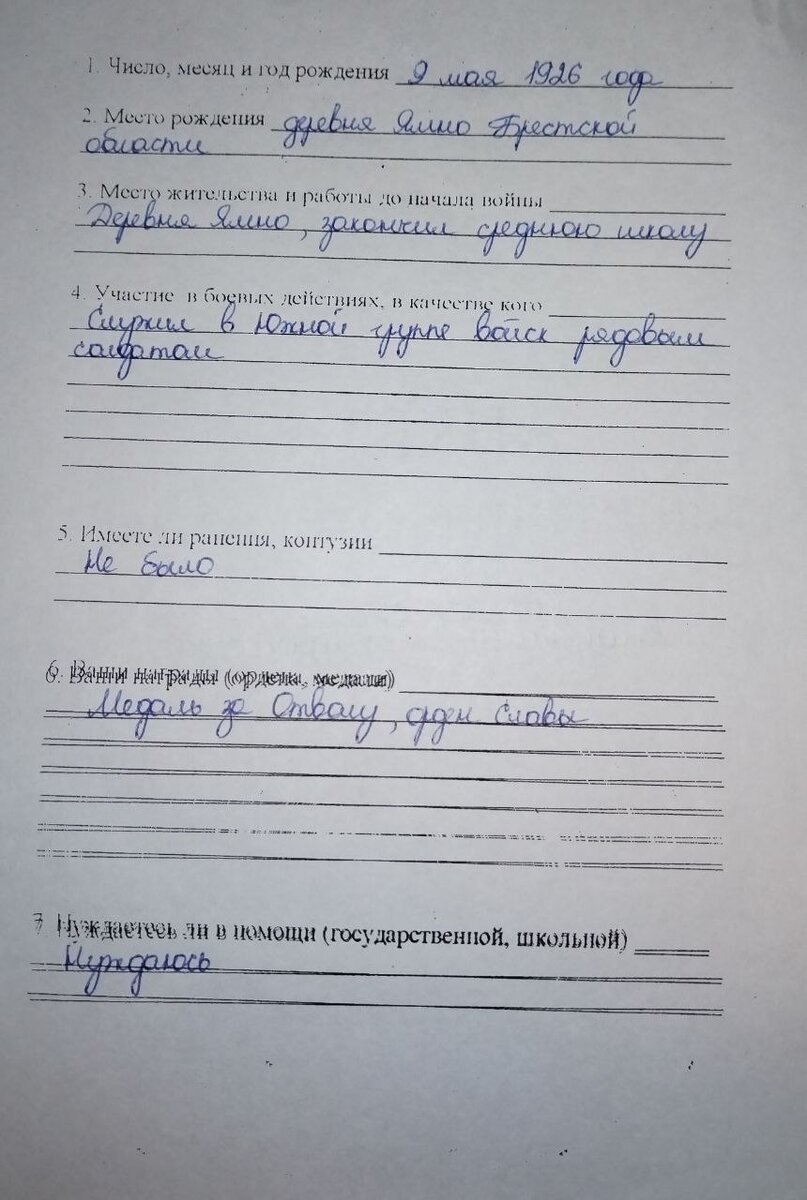 1. Число, месяц и год рождения 9 мая 1926 года
2. Место рождения деревня Ямно Брестской
области
3. Место жительства и работы до начала войны
Деревня Ямно, закончил среднюю школу
4. Участие в боевых действиях, в качестве кого
Служил в Южной группе войск рядовым
солдатом
5. Имеете ли ранения, контузии
Не было
6. Ваши награды (ордена, медали)
Медаль за Отвагу, орден Славы
7 Нуждаетесь ли в помощи (государственной, школьной)
Нуждаюсь